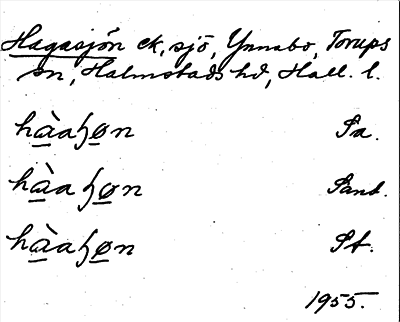 Hagasjön ek, sjö, Ynnabo, Torups
sn, Halmstads hd, Hall. l.
hàaɧøn Pa.
hàaɧøn Sant.
hàaɧøn St.
1955.